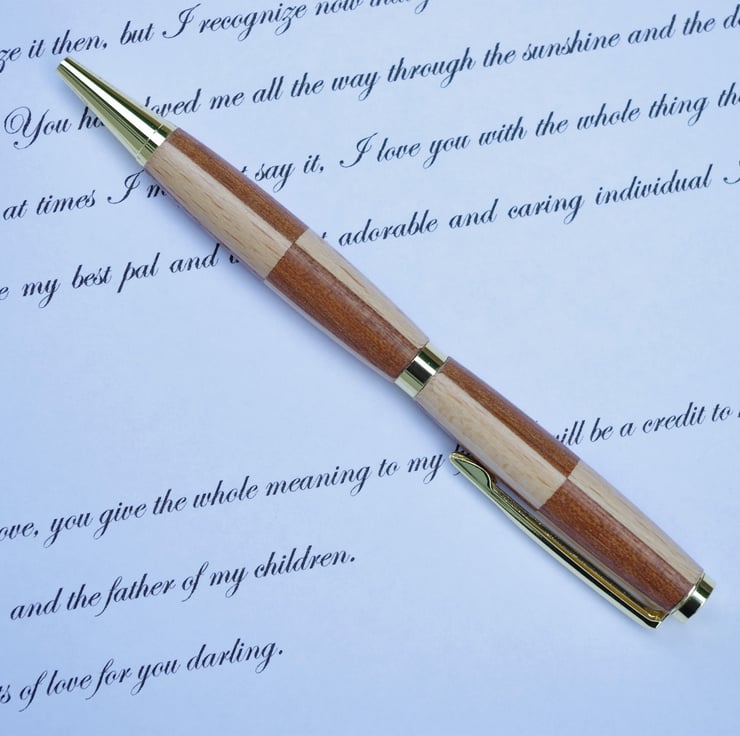 it then, but I recognize now
You loved me all the way through the sunshine and the
at times I say it, I love you with the whole thing
my best pal and adorable and caring individual
will be a credit to
you give the whole meaning to my
and the father of my children.
of love for you darling.